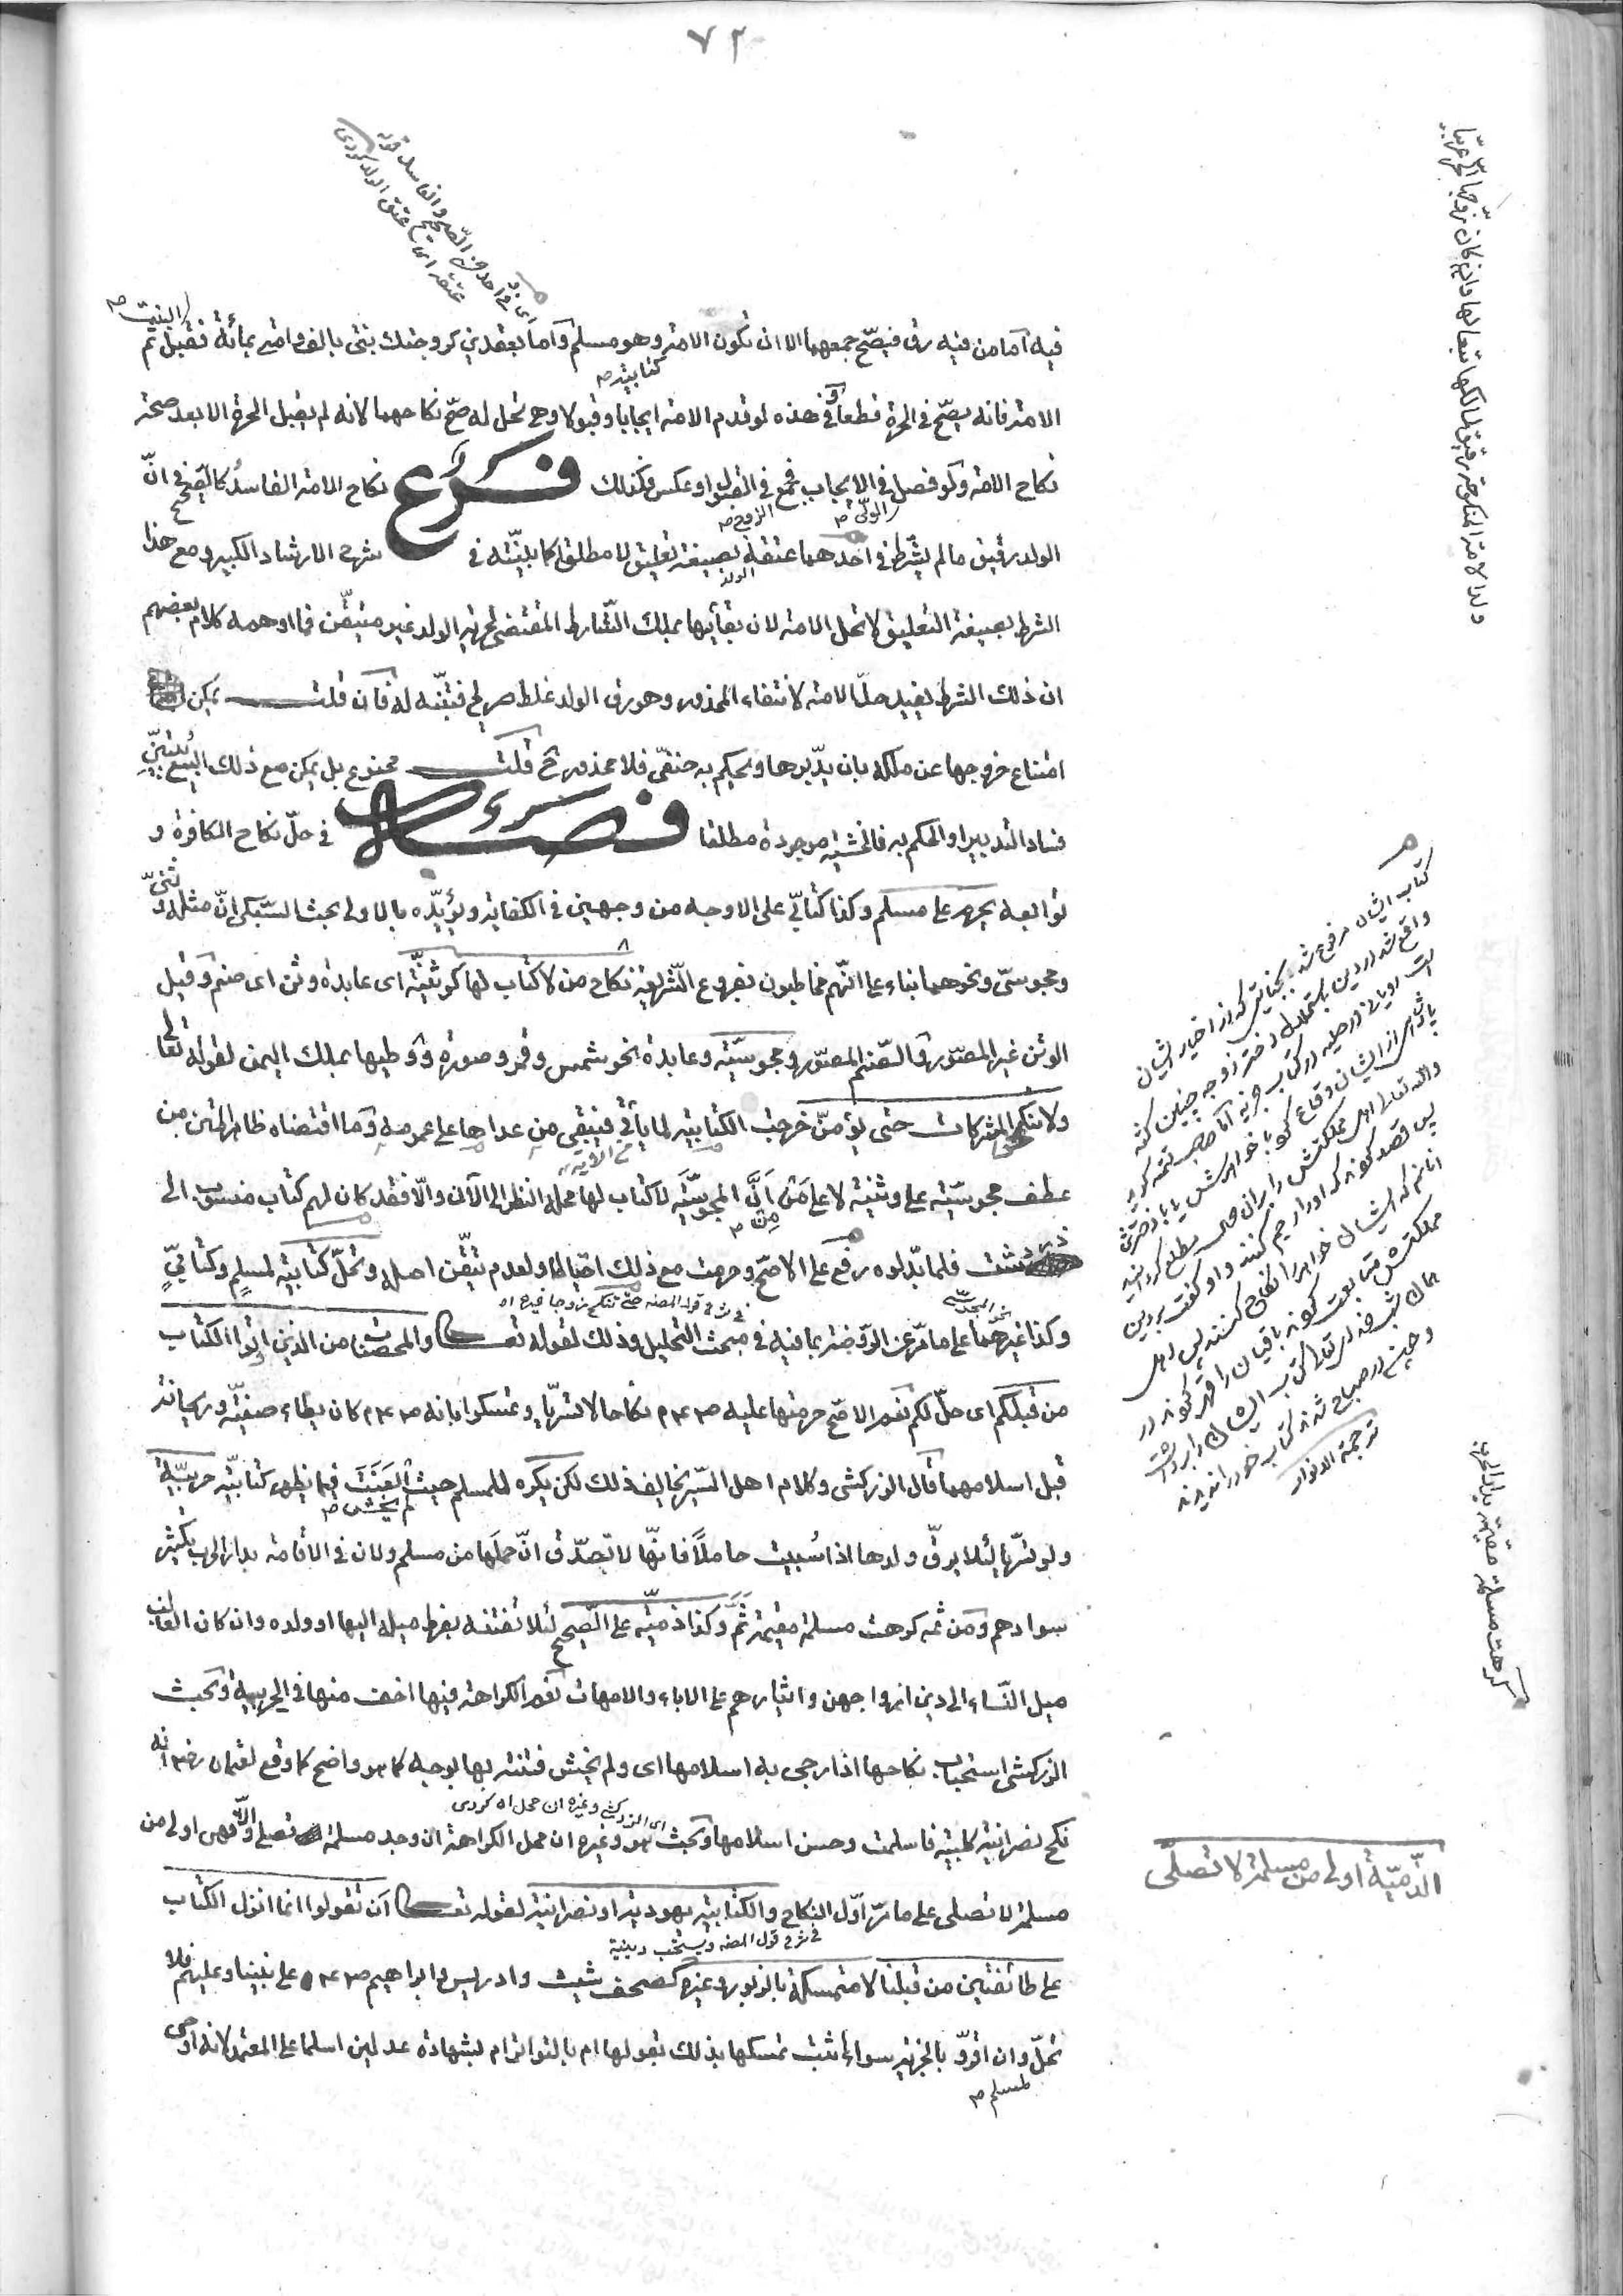 ٧٣
فيه اما من فيه رق فيصح جمعهما الا ان تكون الامة وهو مسلم واما بعقدين كزوجتك بنتى بالف وامتى بمائة فقبل البنت ثم
كتابية
الامة فانه يصح فى الحرة قطعا وفى هذه لو قدم الامة ايجابا وقبولا وهى تحل له صح نكاحهما لانه لم يقبل الحرة الا بعد صحة
نكاح الامة ولو فصل فى الايجاب فجمع فى القبول او عكس فكذلك فرع نكاح الامة الفاسد كالصحيح فى ان
الولى الزوج
الولد رقيق مالم يشرط فى احدهما عتقه بصيغة تعليق لا مطلقا كما بينته فى شرح الارشاد الكبير ومع هذا
الولد
الشرط بصيغة التعليق لا تحل الامة لان بقائها بملك الشارط المقتضى لحرية الولد غير متيقن فما اوهمه كلام بعضهم
ان ذلك الشرط يفيد حل الامة لانتفاء المحذور وهو رق الولد غلط صريح فتنبه له فان قلت يمكن
امتناع خروجها عن ملكه بان يدبرها ويحكم به حنفى فلا محذور ح قلت ممنوع بل يمكن مع ذلك البيع بتبين
فساد التدبير او الحكم به فالخشية موجودة مطلقا فصل فى حل نكاح الكافرة و
توابعه يحرم على مسلم وكذا كتابى على الاوجه من وجهين فى الكفاية ويؤيده بالاولى بحث السبكى ان مثله وثنى
ومجوسى ونحوهما بناء على انهم مخاطبون بفروع الشريعة نكاح من لا كتاب لها كوثنية اى عابدة وثن اى صنم وقيل
الوثن غير المصور والصنم المصور ومجوسية وعابدة نحو شمس وقمر وصورة ووطيها بملك اليمن لقوله تعالى
ولا تنكحوا المشركات حتى يؤمن خرجت الكتابية لما يأتى فيبقى من عداها على عمومه وما اقتضاه ظاهر المتن من
عطف مجوسية على وثنية لا على من ان المجوسية لا كتاب لها محله بالنظر الى الآن والا فقد كان لهم كتاب منسوب الى
زردشت فلما بدلوه رفع على الاصح وحرمت مع ذلك احتياطا ولعدم تيقن اصله وتحل كتابية لمسلم وكتابى
نحو المجوسى فى شرح قول المصنف حتى تنكح زوجا غيره اه
وكذا غيرهما على ما مر عن الروضة بما فيه فى مبحث التحليل وذلك لقوله تعالى والمحصنات من الذين اوتوا الكتاب
من قبلكم اى حل لكم نعم الاصح حرمتها عليه صلعم نكاحا لا تسريا وتمسكوا بانه صلعم كان يطاء صفية وريحانة
قبل اسلامهما قال الزركشى وكلام اهل السير يخالف ذلك لكن يكره للمسلم حيث لم يخش العنت فيما يظهر كتابية حربية
ولو تسريا لئلا يرق ولدها اذا سبيت حاملا فانها لا تصدق ان حملها من مسلم ولان فى الاقامة بدار الحرب تكثير
سوادهم ومن ثمه كرهت مسلمة مقيمة ثم وكذا ذمية على الصحيح لئلا تفتنه بفرط ميله اليها او ولده وان كان الغالب
ميل النساء الى دين ازواجهن وايثارهم على الاباء والامهات نعم الكراهة فيها اخف منها فى الحربية وبحث
الزركشى استحباب نكاحها اذا رجى به اسلامها اى ولم يخش فتنته بها بوجه كما هو واضح كما وقع لعثمان رض انه
اى الزركشى وغيره ان محل اه كردى
نكح نصرانية كلبية فاسلمت وحسن اسلامها وبحث هو وغيره ان محل الكراهة ان وجد مسلمة تصلى والا فهى اولى من
مسلمة لا تصلى على ما مر اول النكاح والكتابية يهودية او نصرانية لقوله تعالى ان تقولوا انما انزل الكتاب
فى شرح قول المصنف ويستحب دينية
على طائفتين من قبلنا لا متمسكة بالزبور وغيره كصحف شيث وادريس وابراهيم صلعم على نبينا وعليهم فلا
تحل وان اقروا بالجزية سواء اثبت تمسكها بذلك بقولها ام بالتواتر ام بشهادة عدلين اسلما على المعتمد لانه اوحى
لمسلم
اى فى احد من الصحيح والفاسد قوله
عتقه اى عتق الولد كردى
ولد الامة المنكوحة رقيق لمالكها تبعا لها وان كان زوجها الحر عربيا
ترجمة الانوار
كرهت مسلمة مقيمة بدار الحرب
الذمية اولى من مسلمة لا تصلى